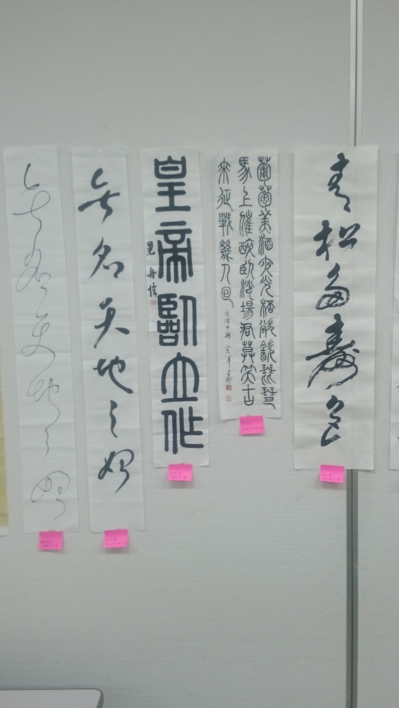 青松多壽色
葡萄美酒夜光杯欲飲琵琶
馬上催醉臥沙場君莫笑古
來征戰幾人回
皇帝臨立作
無名天地之始
無名天地之始